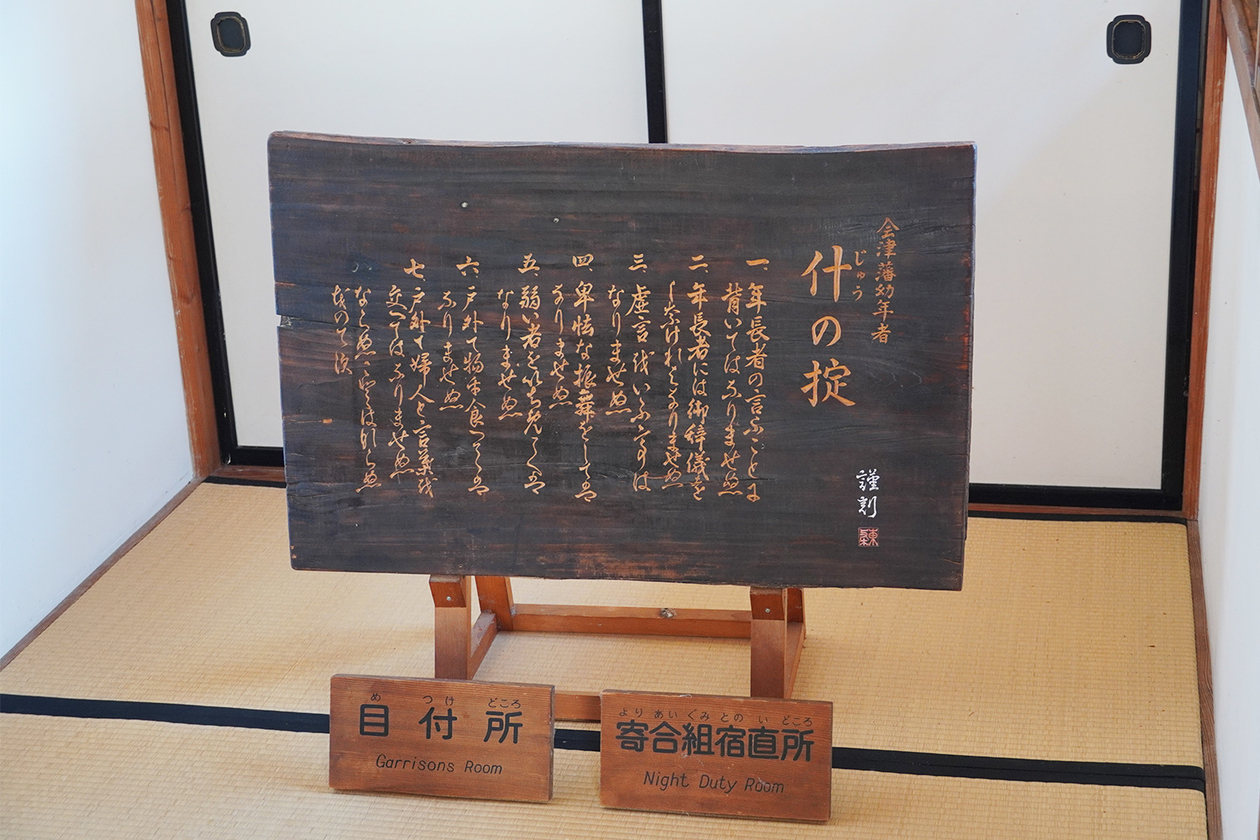 会津藩幼年者
じゅう
什の掟
謹刻
一、年長者の言ふことに
背いてはなりませぬ
二、年長者には御辞儀を
しなければなりませぬ
三、虚言をいふ事は
なりませぬ
四、卑怯な振舞をしては
なりませぬ
五、弱い者をいぢめては
なりませぬ
六、戸外で物を食べては
なりませぬ
七、戸外で婦人と言葉を
交へてはなりませぬ
ならぬことはならぬ
ものです
め つけ どころ
目付所
Garrisons Room
より あい ぐみ との い どころ
寄合組宿直所
Night Duty Room